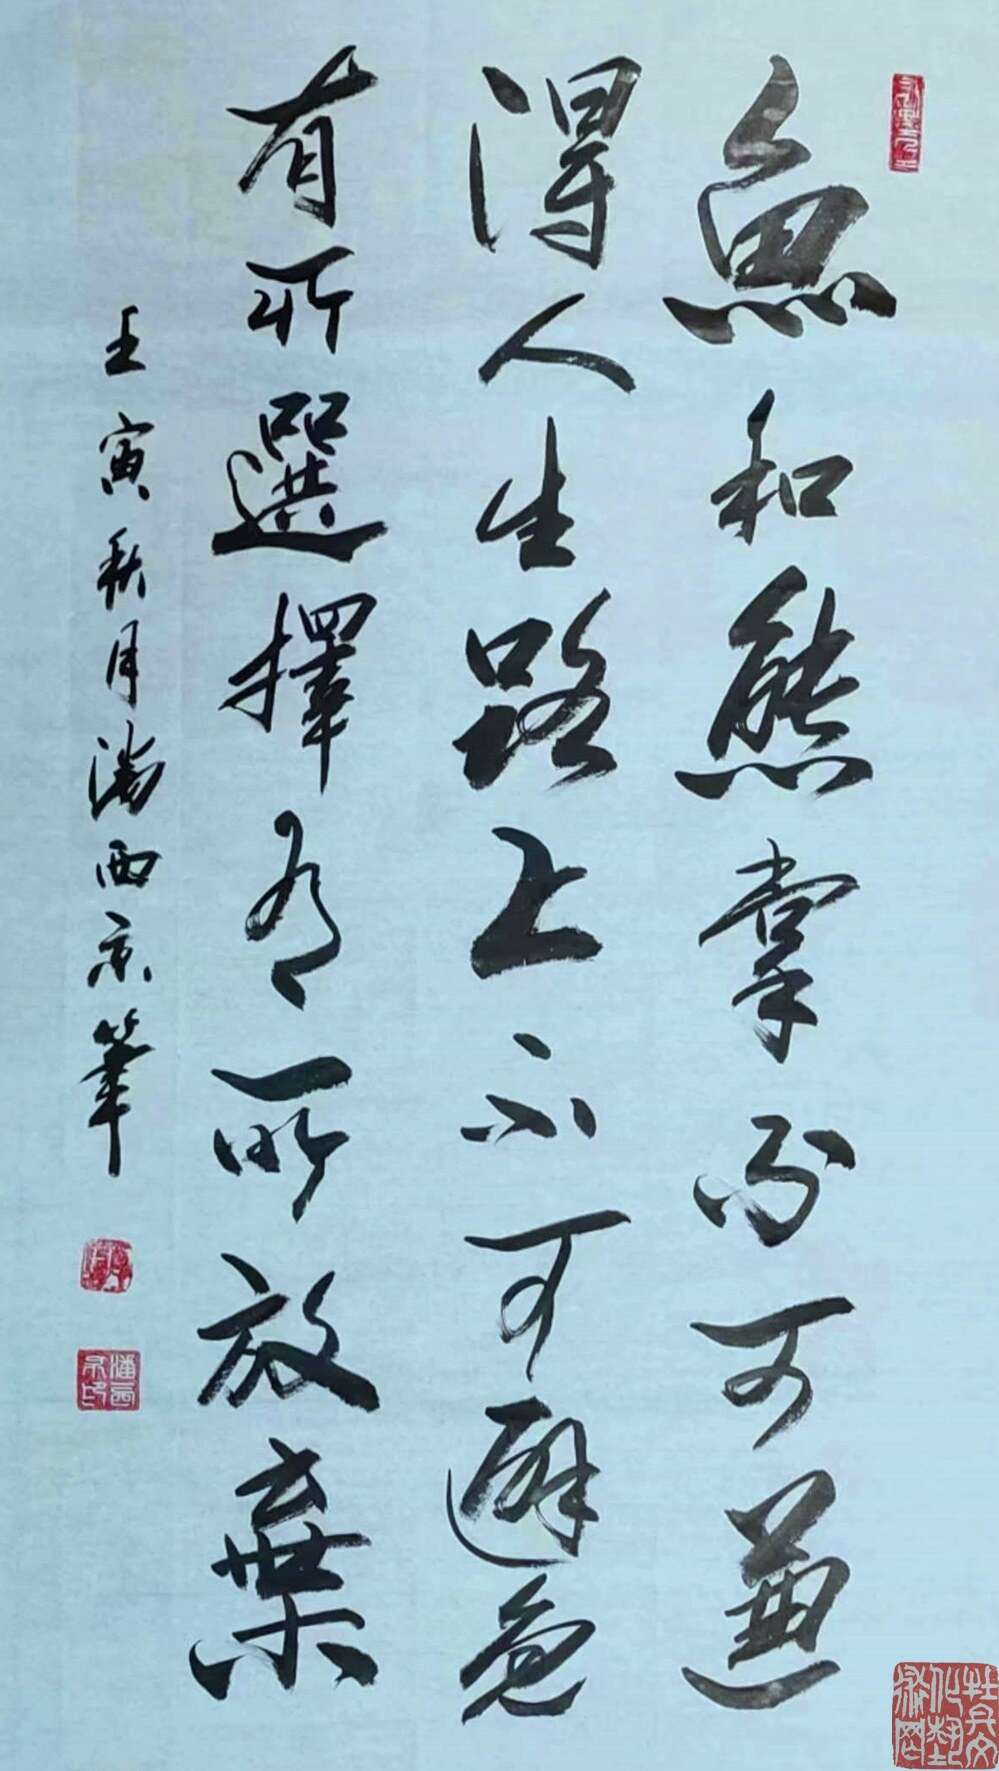 魚和熊掌不可兼
得人生路上不可避免
有所選擇有所放棄
壬寅秋月潘西京筆
潘西京印